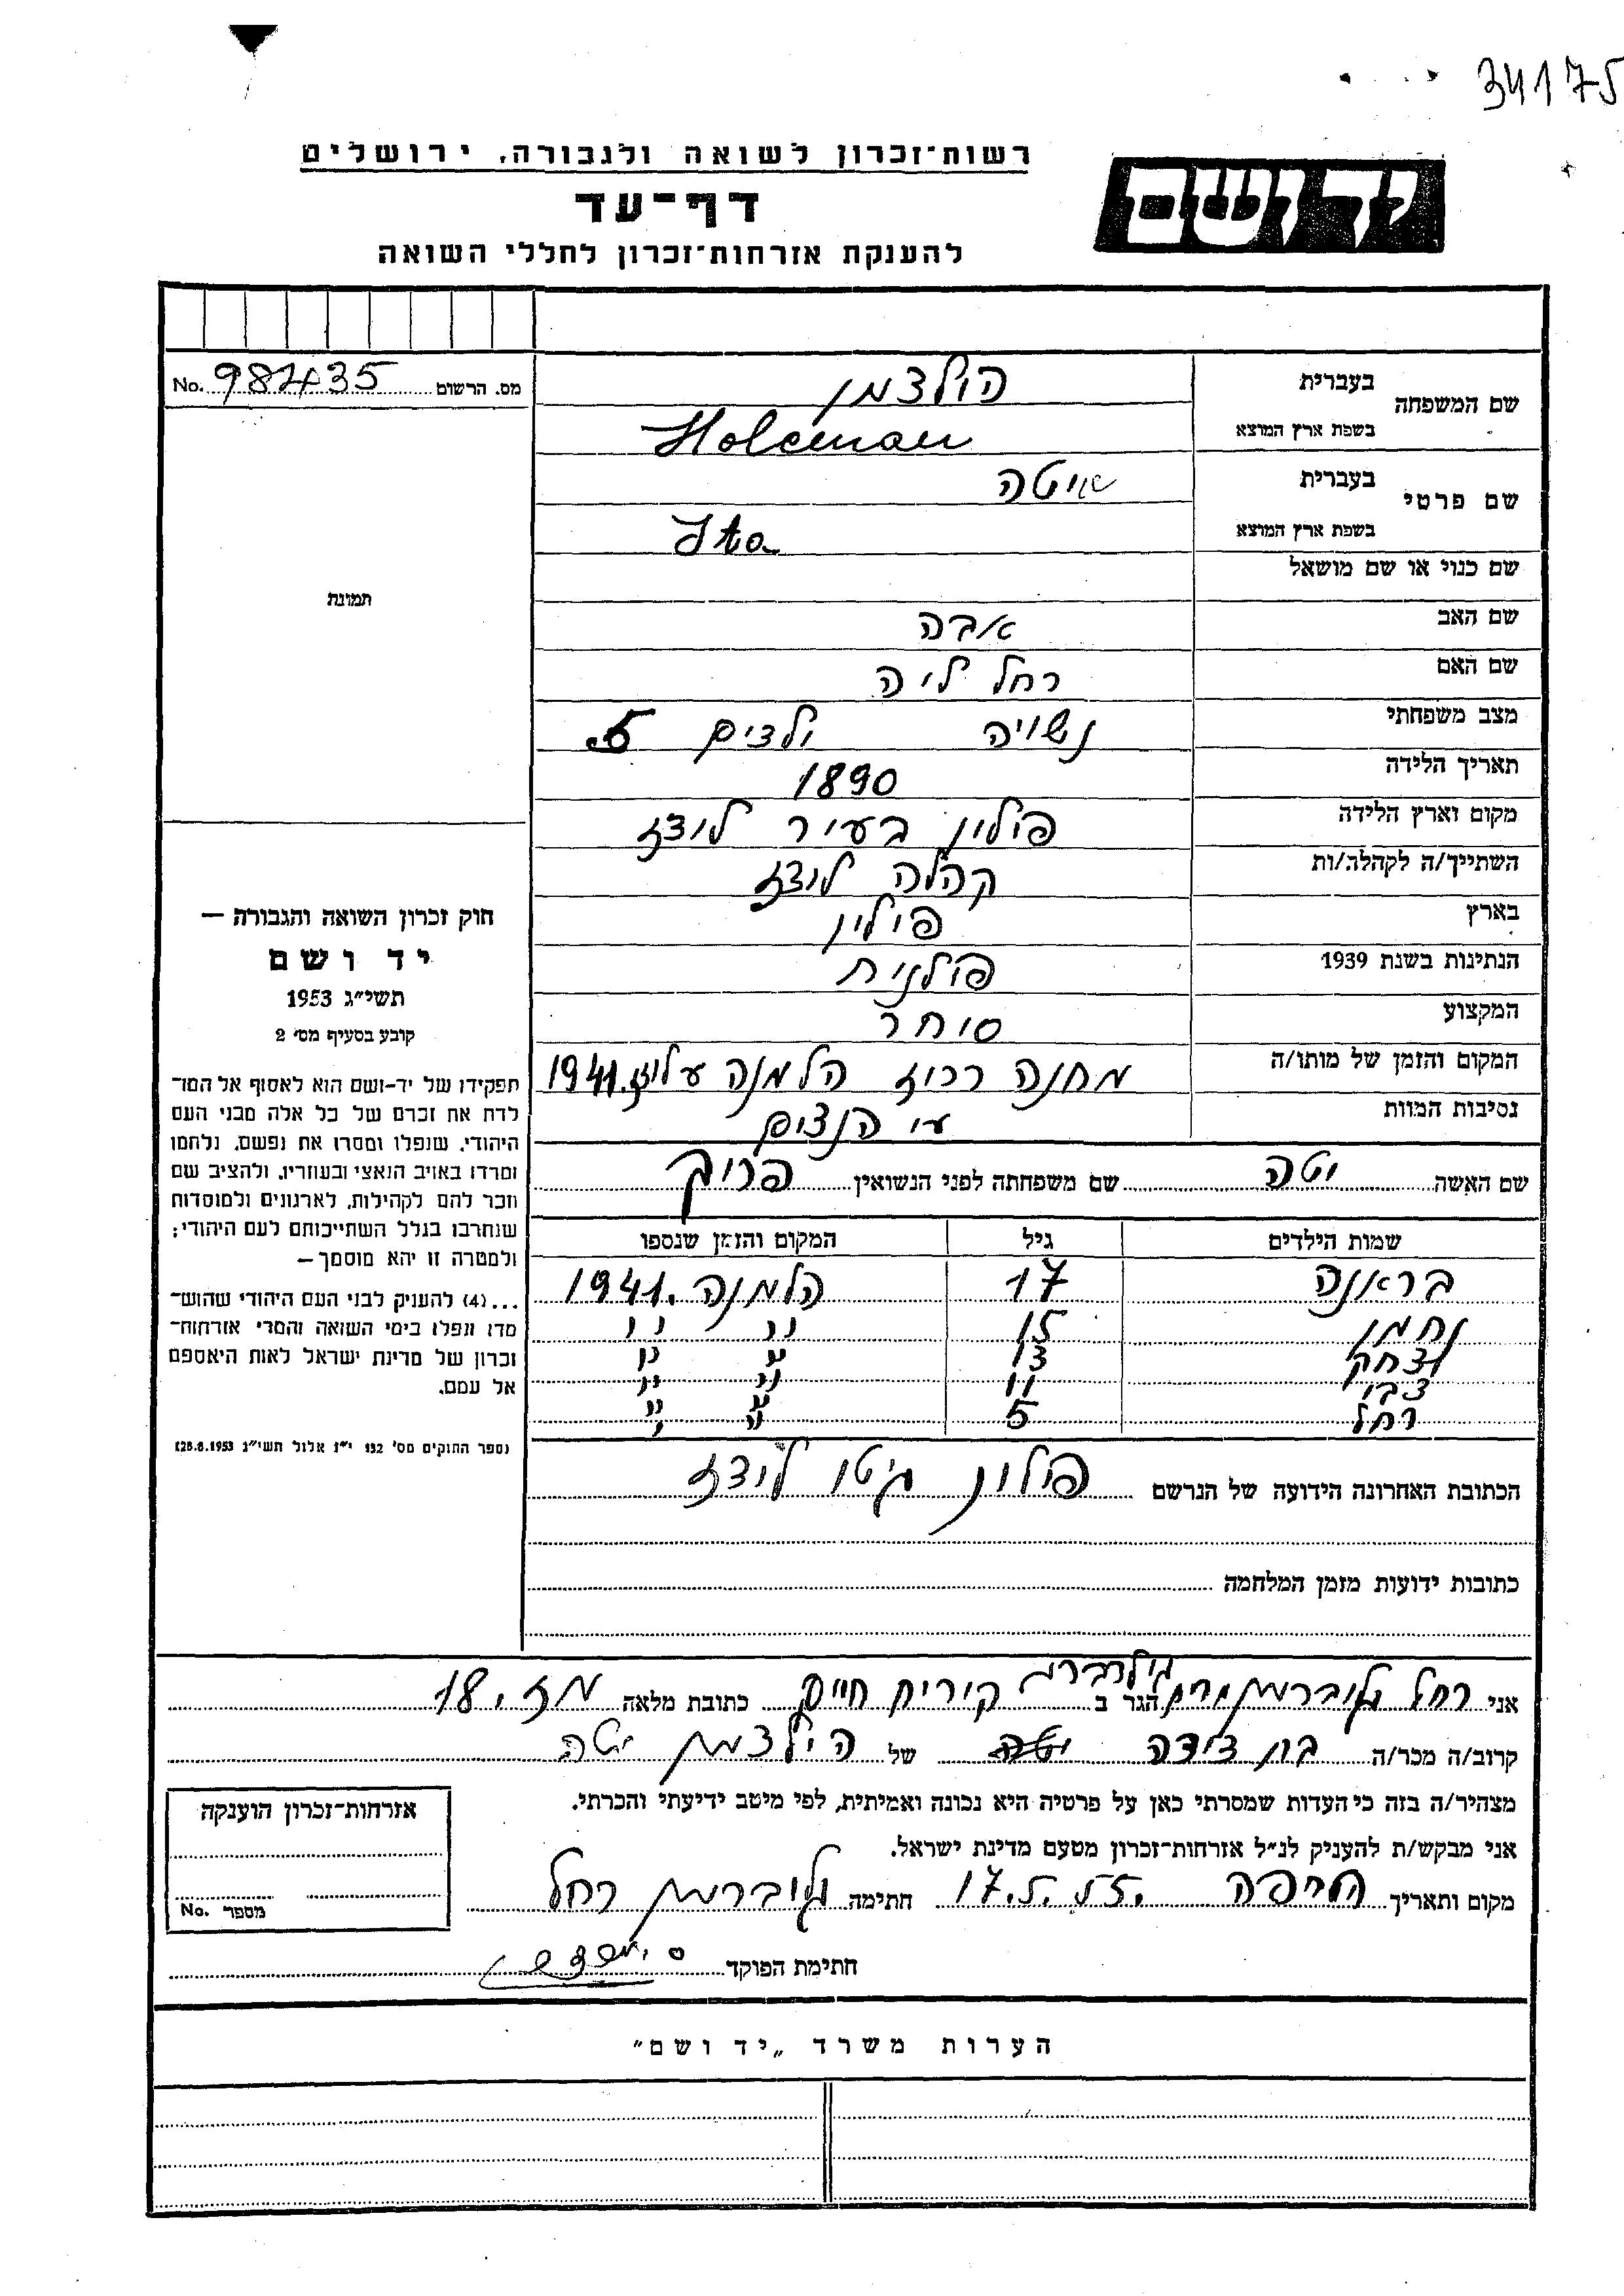 34175
רשות־זכרון לשואה ולגבורה, ירושלים
יד ושם
דף־עד
להענקת אזרחות־זכרון לחללי השואה
מס. הרשום 982435 No.
שם המשפחה
בעברית הולצמן
בשפת ארץ המוצא Holcman
שם פרטי
בעברית איטה
בשפת ארץ המוצא Ita
שם כנוי או שם מושאל
תמונה
שם האב אבה
שם האם רחל ליה
מצב משפחתי נשויה ילדים 5.
תאריך הלידה 1890
מקום וארץ הלידה פילין בעיר לודז
השתייך/ה לקהלה/ות קהלה לודז
בארץ פילין
הנתינות בשנת 1939 פולנית
המקצוע סוחר
המקום והזמן של מותו/ה מחנה רכוז הלמנה עליז 1941.
נסיבות המוות עי הנצים
שם האשה יטה שם משפחתה לפני הנשואין פרוג
שמות הילדים גיל המקום והזמן שנספו
בראנה 17 הלמנה 1941.
נחמן 15 " "
יצחק 13 " "
צבי 11 " "
רחל 5 " "
חוק זכרון השואה והגבורה —
יד ושם
תשי״ג 1953
קובע בסעיף מס׳ 2
תפקידו של יד-ושם הוא לאסוף אל המו־
לדת את זכרם של כל אלה מבני העם
היהודי, שנפלו ומסרו את נפשם, נלחמו
ומרדו באויב הנאצי ובעוזריו, ולהציב שם
וזכר להם לקהילות, לארגונים ולמוסדות
שנחרבו בגלל השתייכותם לעם היהודי;
ולמטרה זו יהא מוסמך—
...(4) להענק לבני העם היהודי שהוש־
מדו ונפלו בימי השואה והמרי אזרחות־
זכרון של מדינת ישראל לאות היאספם
אל עמם.
(ספר החוקים מס׳ 132 י״ז אלול תשי״ג 28.8.1953)
הכתובת האחרונה הידועה של הנרשם פילון גיטו לודז
כתובות ידועות מזמן המלחמה
אני רחל הגר ב קירית חיים כתובת מלאה מז. 18
קרוב/ה מכר/ה בת דידה יטה של הילצמן יטה
מצהיר/ה בזה כי העדות שמסרתי כאן על פרטיה היא נכונה ואמיתית, לפי מיטב ידיעתי והכרתי.
אני מבקש/ת להעניק לנ״ל אזרחות־זכרון מטעם מדינת ישראל.
מקום ותאריך חיפה 17.5.55. חתימה ליברמן רחל
חתימת הפוקד
אזרחות־זכרון הוענקה
מספר No.
הערות משרד „יד ושם״